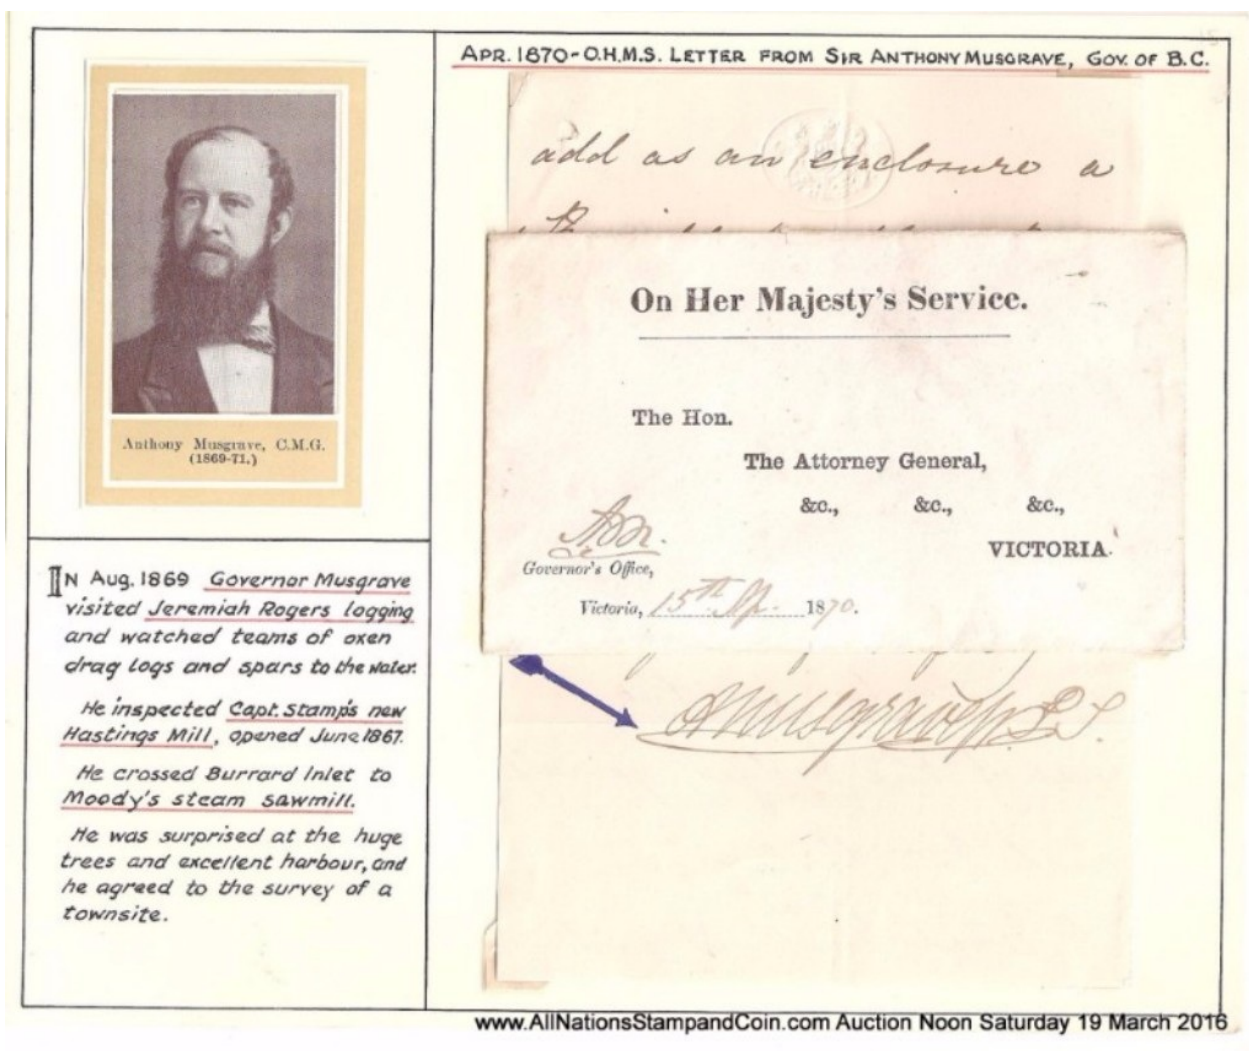 APR. 1870-O.H.M.S. LETTER FROM SIR ANTHONY MUSGRAVE, GOV. OF B.C.
Anthony Musgrave, C.M.G.
(1869-71.)
IN Aug. 1869 Governor Musgrave
visited Jeremiah Rogers logging
and watched teams of oxen
drag logs and spars to the water.
He inspected Capt. Stamp's new
Hastings Mill, opened June 1867.
He crossed Burrard Inlet to
Moody's steam sawmill.
He was surprised at the huge
trees and excellent harbour, and
he agreed to the survey of a
townsite.
add as an enclosure a
On Her Majesty's Service.
The Hon.
The Attorney General,
&c., &c., &c.,
VICTORIA.
Governor's Office,
Victoria, 15th Ap. 1870.
AMusgrave
www.AllNationsStampandCoin.com Auction Noon Saturday 19 March 2016